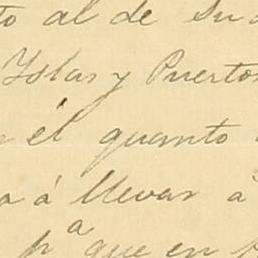 to al de su
Yslas y Puertos
él quanto
a á llevar á
p.a que en